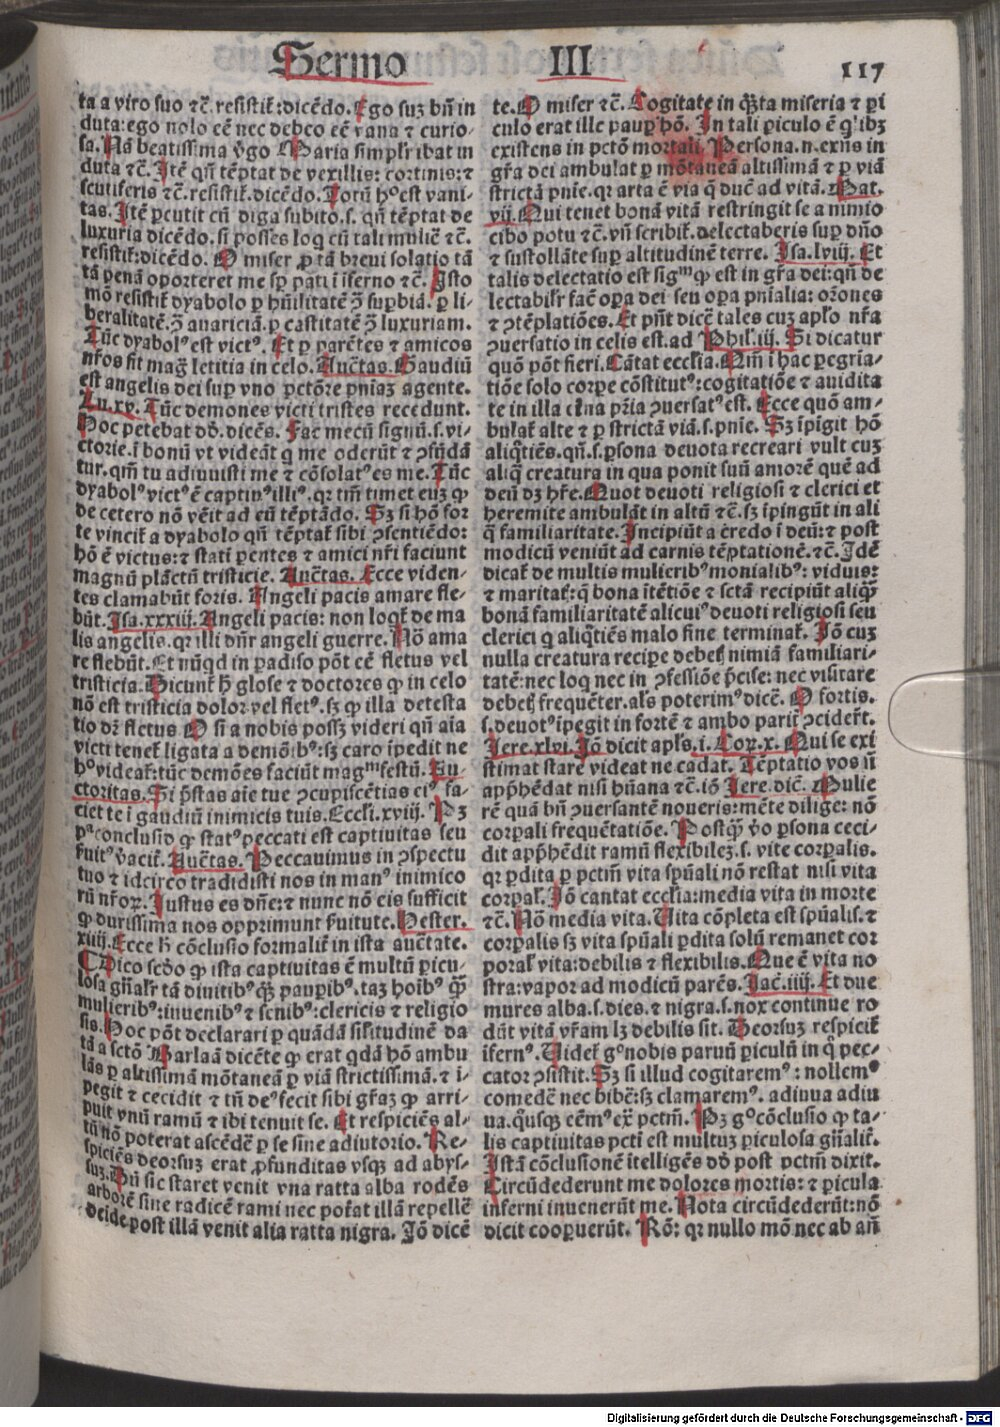 Sermo III 117
ta a viro suo ⁊c̃. resistit̃: dicẽdo. Ego suꝫ bñ in
duta: ego nolo eẽ nec debeo eẽ vana ⁊ curio-
sa. Nã beatissima ṽgo Maria simplr̃ ibat in
duta ⁊c̃. Itẽ qñ tẽptat de vexillis: cortinis: ⁊
scutiferis ⁊c̃. resistit̃. dicẽdo. Totũ hᵒ est vani-
tas. Itẽ ꝑcutit cũ diga subito. s. qñ tẽptat de
luxuria dicẽdo. si posses loq̃ cũ tali muliẽ ⁊c̃.
resistit̃: dicẽdo. O miser ꝓ tã breui solatio tã
tã penã oporteret me sꝑ pati ĩ iferno ⁊c̃. Isto
mõ resistit̃ dyabolo ꝑ hũilitatẽ ꝯ̃ suꝑbiã. ꝑ li-
beralitatẽ. ꝯ̃ auariciã. ꝑ castitatẽ ꝯ̃ luxuriam.
Tũc dyabolᵒ est victᵒ. Et ꝑ parẽtes ⁊ amicos
nr̃os fit mag̃ letitia in celo. Auc̃tas. Gaudiũ
est angelis dei suꝑ vno pctõre pñiaꝫ agente.
Lu. xv. Tũc demones victi tristes recedunt.
Hoc petebat dd̃. dicẽs. Fac mecũ signũ. s. vi-
ctorie. ĩ bonũ vt videãt q̃ me oderũt ⁊ ꝯfũdã
tur. qm̃ tu adiuuisti me ⁊ cõsolatᵒ es me. Tũc
dyabolᵒ victᵒ ẽ captiuᵒ illiᵒ. qꝛ tñ timet euꝫ ꝙ
de cetero nõ vẽit ad eũ tẽptãdo. Sꝫ si hõ for
te vincit̃ a dyabolo qñ tẽptat̃ sibi ꝯsentiẽdo:
hõ ẽ victus: ⁊ stati ꝑentes ⁊ amici nr̃i faciunt
magnũ plãctũ tristicie. Auc̃tas. Ecce viden-
tes clamabũt foris. Angeli pacis amare fle-
bũt. Isa. xxxiij. Angeli pacis: non loqt̃ de ma
lis angelis. qꝛ illi dñr angeli guerre. Nõ ama
re flebũt. Et nũqd in ꝑadiso põt eẽ fletus vel
tristicia. Dicunt̃ h̃ glose ⁊ doctores ꝙ in celo
nõ est tristicia dolor vel fletᵒ. sꝫ ꝙ illa detesta
tio dr̃ fletus O si a nobis possꝫ videri qñ aĩa
victi tenet̃ ligata a demõibᵒ: sꝫ caro ĩpedit ne
hᵒ videat̃: tũc demões faciũt magᵐ festũ. Au-
ctoritas. Si p̃stas aĩe tue ꝯcupiscẽtias eiᵒ fa-
ciet te ĩ gaudiũ inimicis tuis. Eccli. xviij. Pꝫ
pᵃ conclusio ꝙ statᵒ peccati est captiuitas seu
ẽuitᵒ ṽacit̃. Auc̃tas. Peccauimus in ꝯspectu
tuo ⁊ idcirco tradidisti nos in manᵒ inimico
rũ nr̃oꝝ. Iustus es dñe: ⁊ nunc nõ eis sufficit
ꝙ durissima nos opprimunt ẽuitute. Hester.
xiiij. Ecce h̃ cõclusio formalit̃ in ista auc̃tate.
Dico scd̃o ꝙ ista captiuitas ẽ multũ ꝑicu-
losa gñalr̃ tã diuitibᵒ q̃ꝫ pauꝑibᵒ. taꝫ hoĩbᵒ q̃ꝫ
mulieribᵒ: iuuenibᵒ ⁊ senibᵒ: clericis ⁊ religio
sis. Hoc põt declarari ꝑ quãdã silĩtudinẽ da
tã a sctõ Barlaã dicẽte ꝙ erat qdã hõ ambu
lãs ꝑ altissimã mõtaneã ꝑ viã strictissimã. ⁊ i-
pegit ⁊ cecidit ⁊ tñ deᵒ fecit sibi gr̃aꝫ ꝙ arri-
puit vnũ ramũ ⁊ ibi tenuit se. Et respiciẽs al-
tũ nõ poterat ascẽdẽ ꝑ se sine adiutorio. Re-
spiciẽs deorsuꝫ erat ꝓfunditas vsqꝫ ad abys-
suꝫ. Dũ sic staret venit vna ratta alba rodẽs
arborẽ sine radicẽ rami nec pot̃at illã repellẽ
deĩde post illã venit alia ratta nigra. Iõ dicẽ
te. O miser ⁊c̃. Cogitate in q̃ta miseria ⁊ ꝑi
culo erat ille pauꝑ hõ. In tali ꝑiculo ẽ qͥlibꝫ
existens in pctõ mortali. Persona. n. exñs in
gr̃a dei ambulat ꝑ mõtaneã altissimã ⁊ ꝑ viã
strictã pñie. qꝛ arta ẽ via q̃ ducit̃ ad vitã. Mat.
vij. Qui tenet bonã vitã restringit se a nimio
cibo potu ⁊c̃. vñ scribit̃. delectaberis suꝑ dño
⁊ sustollãte suꝑ altitudinẽ terre. Isa. lviij. Et
talis delectatio est sigᵐ ꝙ est in gr̃a dei: qñ de
lectabilr̃ fac̃ oꝑa dei seu oꝑa pñialia: oꝛ̃ones
⁊ ꝯtẽplatiões. Et pñt dicẽ tales cuꝫ aplo nr̃a
ꝯuersatio in celis est. ad Phil. iij. Si dicatur
quõ põt fieri. Cãtat ecclia. Qm̃ ĩ hac ꝑegria-
tiõe solo corꝑe cõstitutᵒ: cogitatiõe ⁊ auidita
te in illa etna pr̃ia ꝯuersatᵒ est. Ecce quõ am-
bulat̃ alte ⁊ ꝑ strictã viã. s. pñie. Sꝫ ĩpigit hõ
aliqtiẽs. qñ. s. ꝑsona deuota recreari vult cuꝫ
aliq̃ creatura in qua ponit suũ amorẽ quẽ ad
deũ dꝫ hr̃e. Quot deuoti religiosi ⁊ clerici et
heremite ambulãt in altũ ⁊c̃. sꝫ ĩpingũt in ali
q̃ familiaritate. Incipiũt a credo ĩ deũ: ⁊ post
modicũ veniũt ad carnis tẽptationẽ. ⁊c̃. Idẽ
dicat̃ de multis mulieribᵒ monialibᵒ: viduis:
⁊ maritat̃: q̃ bona ĩtẽtiõe ⁊ sctã recipiũt aliq̃
bonã familiaritatẽ alicuiᵒ deuoti religiosi seu
clerici q̃ aliqtiẽs malo fine terminat̃. Iõ cuꝫ
nulla creatura reciꝑe debetꝭ nimiã familiari-
tatẽ: nec loq̃ nec in ꝯfessiõe ꝑcise: nec visitare
debetꝭ frequẽter. als poterimᵒ dicẽ. O fortis.
s. deuotᵒ ĩpegit in fortẽ ⁊ ambo parit̃ ꝯcidert̃.
Iere. xlvi. Iõ dicit apl̃s. i. Coꝝ. x. Qui se exi
stimat stare videat ne cadat. Tẽptatio vos ñ
app̃hẽdat nisi hũana ⁊c̃. iõ Iere. dic̃. Mulie
rẽ quã bñ ꝯuersantẽ noueris: mẽte dilige: nõ
corꝑali frequẽtatiõe. Postq̃ꝫ ṽo ꝑsona ceci-
dit app̃hẽdit ramũ flexibileꝫ. s. vite corꝑalis.
qꝛ ꝑdita ꝑ pctm̃ vita spũali nõ restat nisi vita
corꝑal̃. Iõ cantat ecclia: media vita in morte
⁊c̃. Nõ media vita. Uita cõpleta est spũalis. ⁊
corꝑalis sꝫ vita spũali ꝑdita solũ remanet cor
poral̃ vita: debilis ⁊ flexibilis. Que ẽ vita no
stra: vapor ad modicũ parẽs. Iac̃. iiij. Et due
mures alba. s. dies. ⁊ nigra. s. nox continue ro
dũt vitã vr̃am lꝫ debilis sit. Deorsuꝫ respicit̃
ifernᵒ. Uidet̃ gᵒ nobis paruũ ꝑiculũ in qͥ pec-
cator ꝯsistit. Sꝫ si illud cogitaremᵒ: nollemᵒ
comedẽ nec bibẽ: sꝫ clamaremᵒ. adiuua adiu
ua. qͥusqꝫ eẽmᵒ ex̃ pctm̃. Pꝫ gᵒ cõclusio ꝙ ta-
lis captiuitas pcti est multuꝫ ꝑiculosa gñalit̃.
Istã cõclusionẽ ĩtelligẽs dd̃ post pctm̃ dixit.
Circũdederunt me dolores mortis: ⁊ ꝑicula
inferni inuenerũt me. Nota circũdederũt: nõ
dicit cooꝑuerũt. Rõ: qꝛ nullo mõ nec ab añ
Digitalisierung gefördert durch die Deutsche Forschungsgemeinschaft - DFG